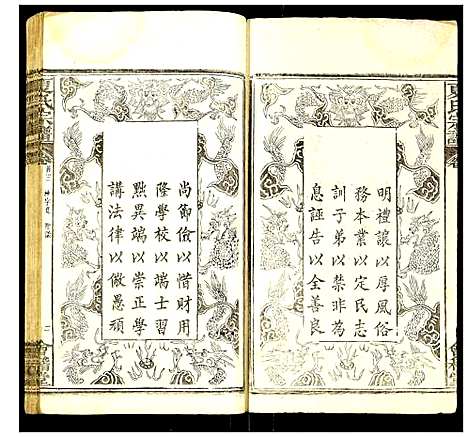 明禮讓以厚風俗
務本業以定民志
訓子弟以禁非為
息誣告以全善良
尚節儉以惜財用
隆學校以端士習
黜異端以崇正學
講法律以儆愚頑
氏宗譜